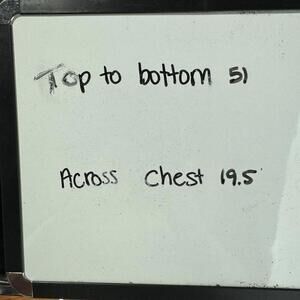 Top to bottom 51
Across chest 19.5